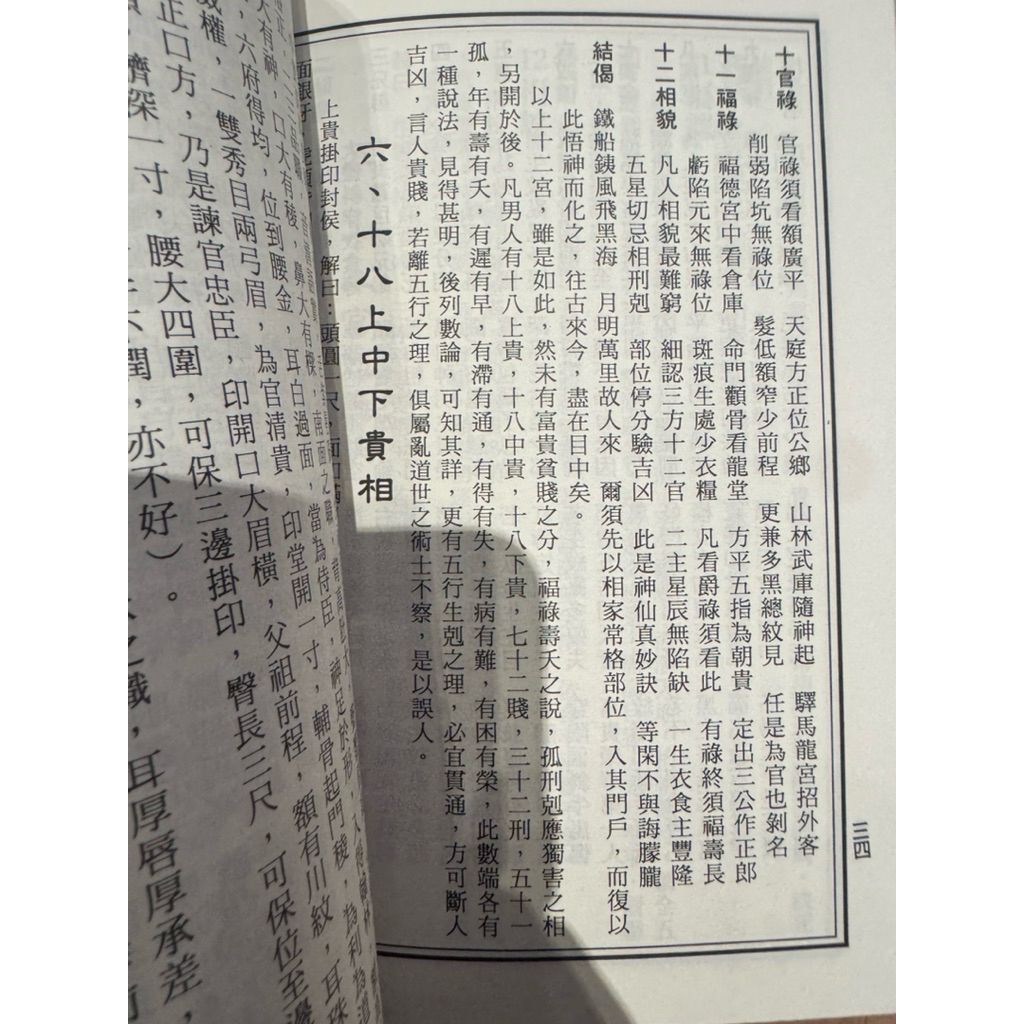 三四
十官祿　官祿須看額廣平　天庭方正位公鄉　山林武庫隨神起　驛馬龍宮招外客
削弱陷坑無祿位　髮低額窄少前程　更兼多黑總紋見　任是為官也剝名
十一福祿　福德宮中看倉庫　命門顴骨看龍堂　方平五指為朝貴　定出三公作正郎
虧陷元來無祿位　斑痕生處少衣糧　凡看爵祿須看此　有祿終須福壽長
十二相貌　凡人相貌最難窮　細認三方十二官　二主星辰無陷缺　一生衣食主豐隆
五星切忌相刑剋　部位停分驗吉凶　此是神仙真妙訣　等閑不與誨朦朧
結偈　鐵船銕風飛黑海　月明萬里故人來　爾須先以相家常格部位，入其門戶，而復以
此悟神而化之，往古來今，盡在目中矣。
以上十二宮，雖是如此，然未有富貴貧賤之分，福祿壽夭之說，孤刑剋應獨害之相
，另開於後。凡男人有十八上貴，十八中貴，十八下貴，七十二賤，三十二刑，五十一
孤，年有壽有夭，有遲有早，有滯有通，有得有失，有病有難，有困有榮，此數端各有
一種說法，見得甚明，後列數論，可知其詳，更有五行生剋之理，必宜貫通，方可斷人
吉凶，言人貴賤，若離五行之理，俱屬亂道世之術士不察，是以誤人。
六、十八上中下貴相
上貴掛印封侯，解曰：頭圓一尺，面
大有神，口大有稜，鼻大有樑，
，六府得均，位到腰金，耳白過面，當為侍臣，神足於形，
威權，一雙秀目兩弓眉，為官清貴，印堂開一寸，輔骨起門稜，為利為
正口方，乃是諫官忠臣，印開口大眉橫，父祖前程，額有川紋，耳珠
臍深一寸，腰大四圍，可保三邊掛印，臀長三尺，可保位至邊
潤，亦不好）。
之職，耳厚唇厚承差，